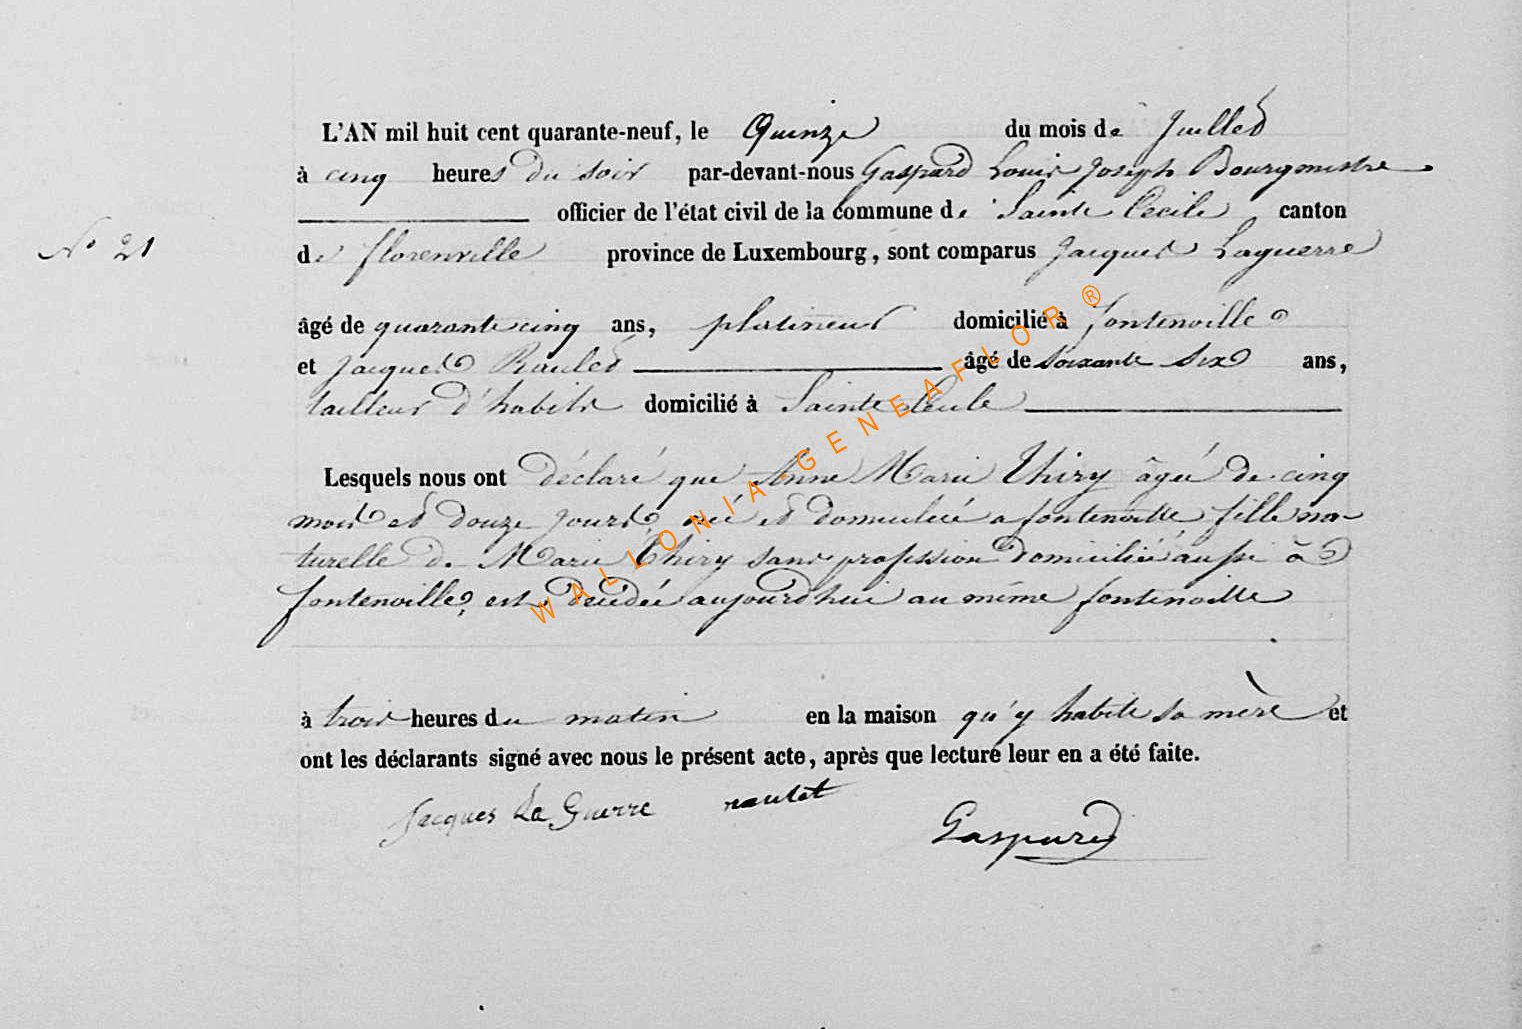 L'AN mil huit cent quarante-neuf, le Quinze du mois de Juillet
à cinq heures du soir par-devant-nous Gaspard Louis Joseph Bourgmestre
officier de l'état civil de la commune de Sainte Cecile canton
N° 21
de florenville province de Luxembourg, sont comparus Jacques Laguerre
âgé de quarante cinq ans, platineur domicilié à fontenoille
et Jacques Raulet âgé de soixante six ans,
tailleur d'habits domicilié à Sainte Cecile
Lesquels nous ont déclaré que Anne Marie Thiry âgée de cinq
mois et douze jours, née et domiciliée a fontenoille fille na-
turelle de Marie Thiry sans profession domiciliée aussi à
fontenoille, est décédée aujourd'hui au même fontenoille
à trois heures du matin en la maison qu'y habite sa mère et
ont les déclarants signé avec nous le présent acte, après que lecture leur en a été faite.
Jacques La Guerre raulet
Gaspard
WALLONIA-GENEAFLOR ®